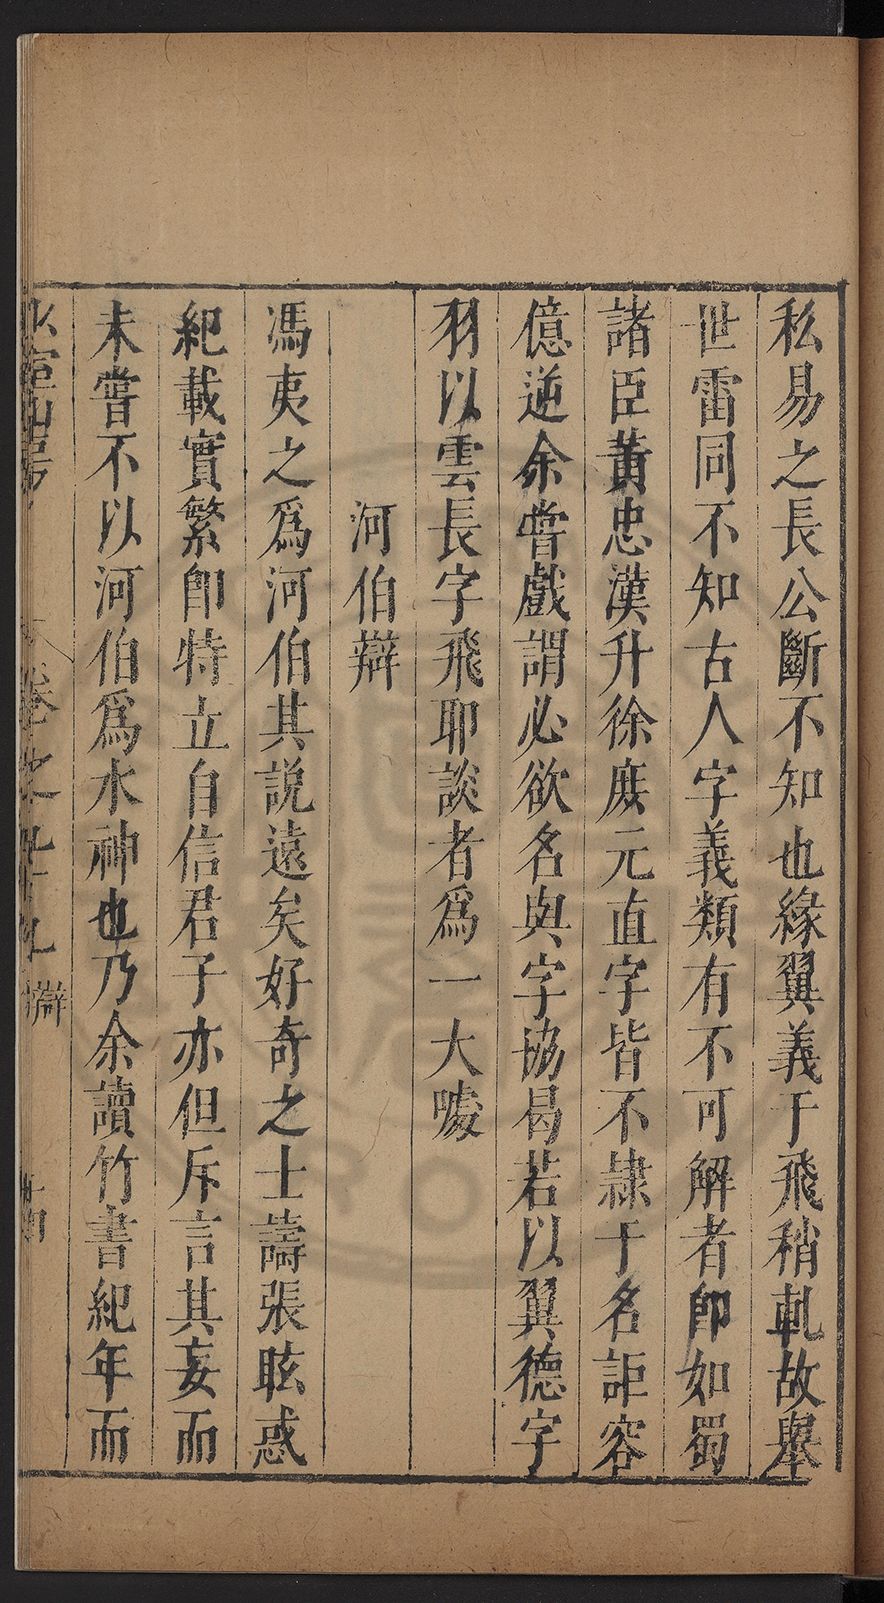 私易之長公斷不知也緣翼義于飛稍軋故舉
世雷同不知古人字義類有不可解者卽如蜀
諸臣黃忠漢升徐庶元直字皆不隷于名詎容
億逆余嘗戲謂必欲名與字協曷若以翼德字
羽以雲長字飛耶談者爲一大噱
河伯辯
馮夷之爲河伯其説遠矣好奇之士譸張眩惑
紀載實繁卽特立自信君子亦但斥言其妄而
未嘗不以河伯爲水神也乃余讀竹書紀年而
卷之九十九 辯